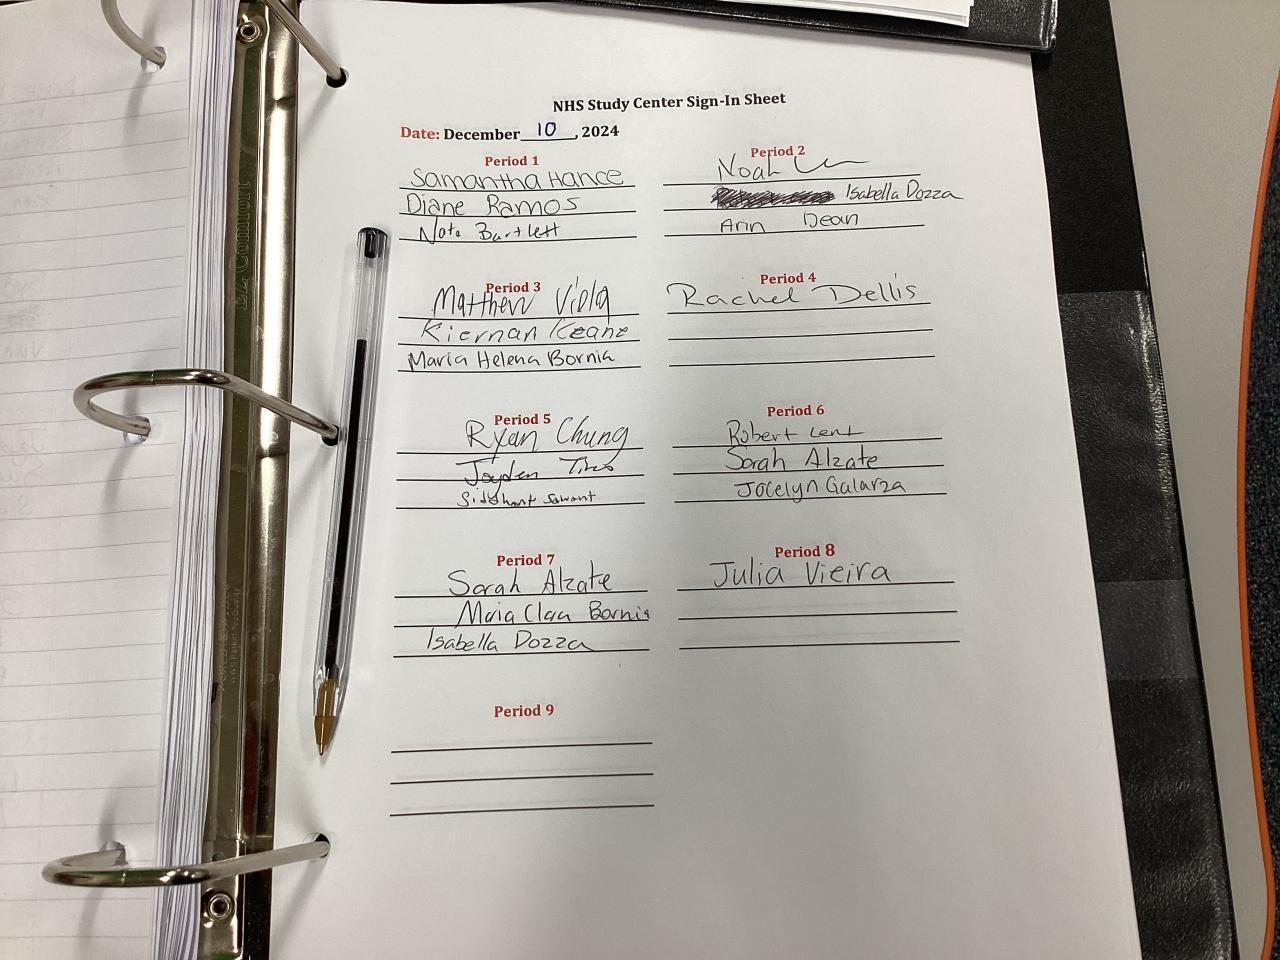 NHS Study Center Sign-In Sheet
Date: December 10, 2024
Period 1
Samantha Hance
Diane Ramos
Nate Bartlett
Period 2
Noah
Isabella Dozza
Arin Dean
Period 3
Matthew Viola
Kiernan Keane
Maria Helena Bornia
Period 4
Rachel Dellis
Period 5
Ryan Chung
Jayden
Siddhant Sawant
Period 6
Robert Lent
Sarah Alzate
Jocelyn Galarza
Period 7
Sarah Alzate
Maria Clara Bornia
Isabella Dozza
Period 8
Julia Vieira
Period 9